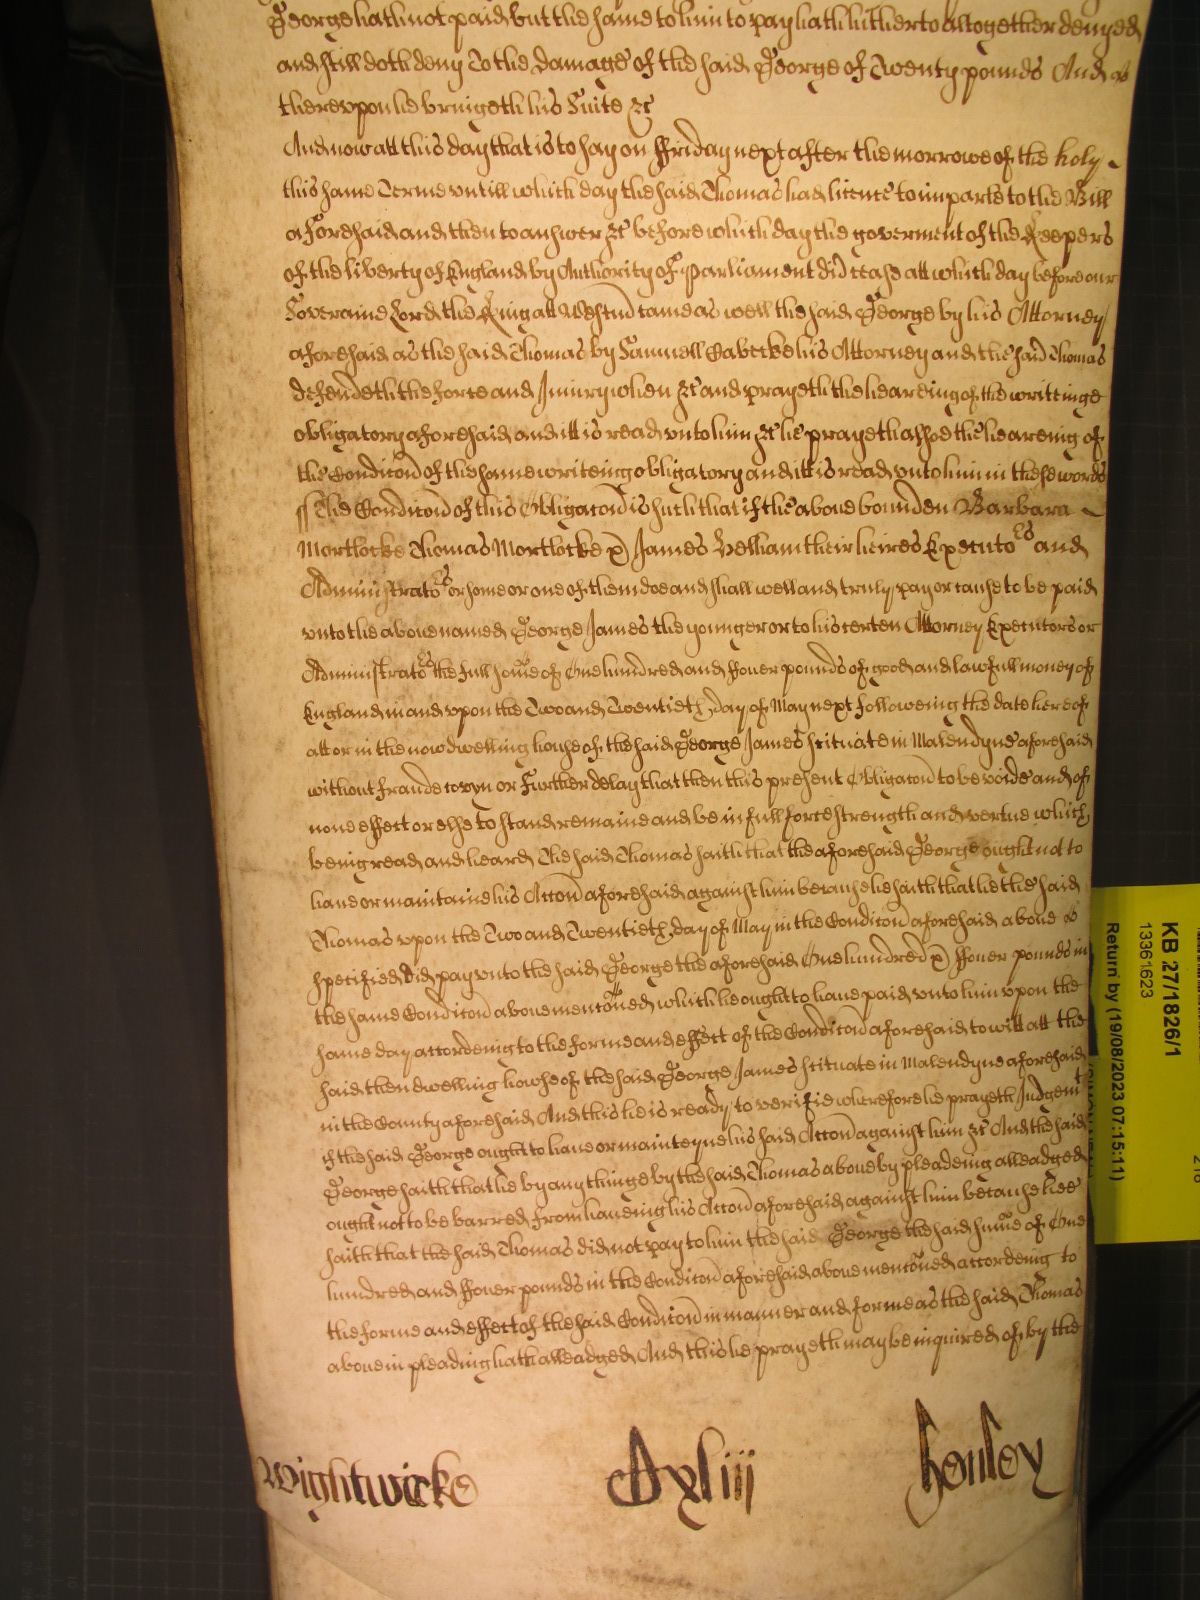 George hath not paid but the same to him to pay hath hitherto altogether denyed
and still doth deny To the damage of the said George of Twenty pounds And
therevpon he bringeth his Suite &c
And now att this day that is to say on ffriday next after the morrowe of the holy
this same Terme vntill which day the said Thomas had licence to imparle to the Bill
aforesaid and then to answer &c before which day the goverment of the Keepers
of the liberty of England by Authority of Parliament did cease att which day before our
Soveraine Lord the King att Westm̃ came as well the said George by his Attorney
aforesaid as the said Thomas by Samuell his Attorney and the said Thomas
defendeth the force and Iniury when &c and prayeth the heareing of the writeinge
obligatory aforesaid and itt is read vnto him &c he prayeth alsoe the heareing of
the Condic̃on of the same writeing obligatory and itt is read vnto him in these words
ss The Condic̃on of this Obligac̃on is such that if the aboue bounden Barbara
Mortlocke Thomas Mortlocke & James their heires Executors and
Administrators or some or one of them doe and shall well and truly pay or cause to be paid
vnto the aboue named George James the younger or to his certen Attorney Executors or
Administrators the full som̃e of One hundred and ffower pounds of good and lawfull money of
England in and vpon the Two and Twentieth day of May next followeing the date hereof
att or in the now dwelling house of the said George James scituate in Malendyne aforesaid
without fraude covyn or Further delay that then this present Obligac̃on to be voide and of
none effect or else to stand remaine and be in full force strength and vertue which
being read and heard The said Thomas saith that the aforesaid George ought not to
haue or maintaine his Acc̃on aforesaid against him because he saith that he the said
Thomas vpon the Two and Twentieth day of May in the Condic̃on aforesaid aboue
specified did pay vnto the said George the aforesaid One hundred & ffower pounds in
the same Condic̃on aboue menc̃oned which he ought to haue paid vnto him vpon the
same day accordeing to the forme and effect of the Condic̃on aforesaid to witt att the
said then dwelling howse of the said George James scituate in Malendyne aforesaid
in the County aforesaid And this he is ready to verifie wherefore he prayeth Judgemt
if the said George ought to haue or mainteyne his said Acc̃on against him &c And the said
George saith that he by any thinge by the said Thomas aboue by pleadeing alleadged
ought not to be barred from haueing his Acc̃on aforesaid against him because hee
saith that the said Thomas did not pay to him the said George the said sum̃e of One
hundred and ffower pounds in the Condic̃on aforesaid aboue menc̃oned accordeing to
the forme and effect of the said Condic̃on in manner and forme as the said Thomas
aboue in pleading hath alleadged And this he prayeth may be inquired of by the
Wightwicke xliij Henley
KB 27/1826/1
13361623
Return by (19/08/2023 07:15:11)